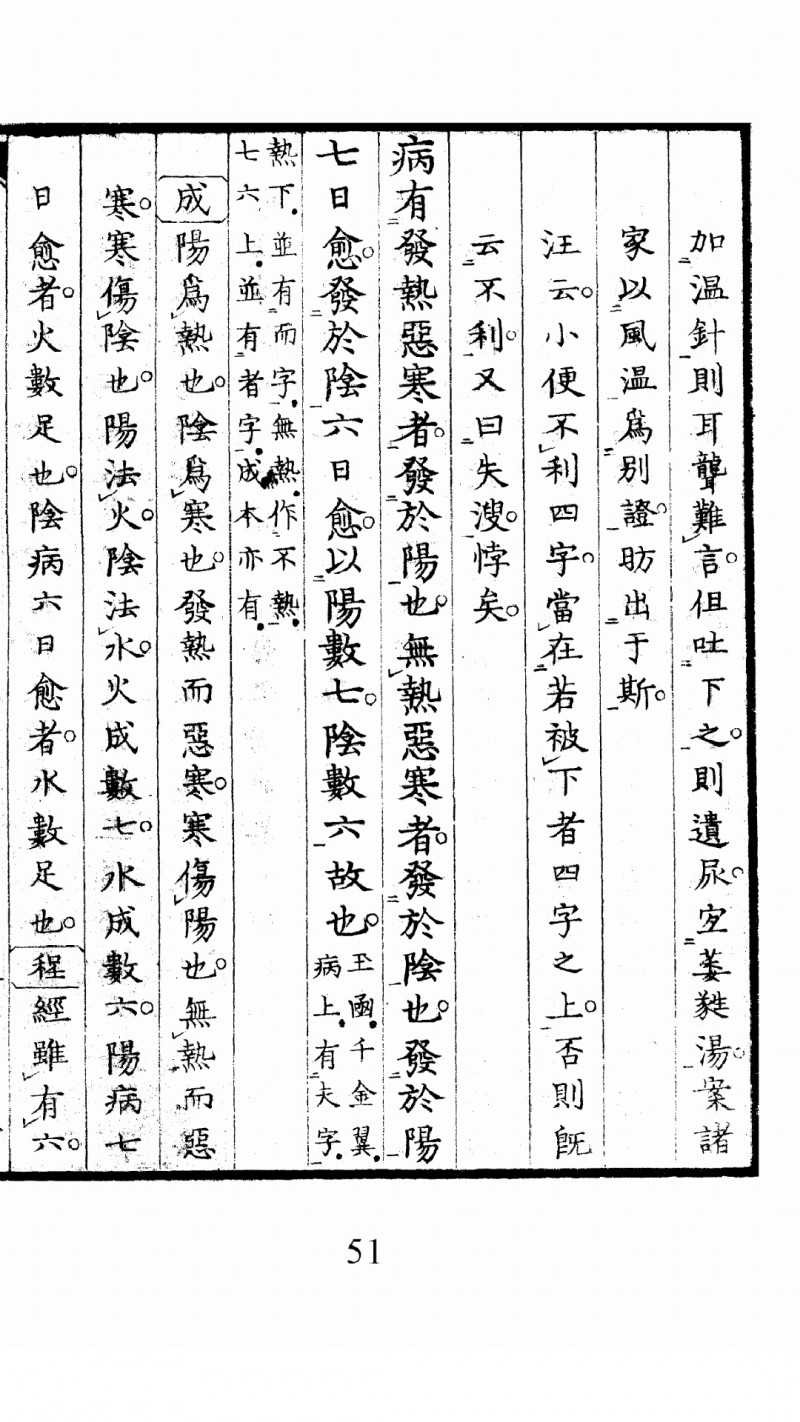 加溫針則耳聾難言。但吐下之。則遺尿。宜萎蕤湯。案諸
家以風溫爲別證。昉出于斯。
汪云。小便不利四字。當在若被下者四字之上。否則既
云不利。又曰失溲。悖矣。
病有發熱惡寒者。發於陽也。無熱惡寒者。發於陰也。發於陽
七日愈。發於陰六日愈。以陽數七。陰數六故也。玉函千金翼。病上。有夫字。
熱下。並有而字。無熱。作不熱。七六上。並有者字。成本亦有。
成陽爲熱也。陰爲寒也。發熱而惡寒。寒傷陽也。無熱而惡
寒。寒傷陰也。陽法火。陰法水。火成數七。水成數六。陽病七
日愈者。火數足也。陰病六日愈者。水數足也。程經雖有六。
51